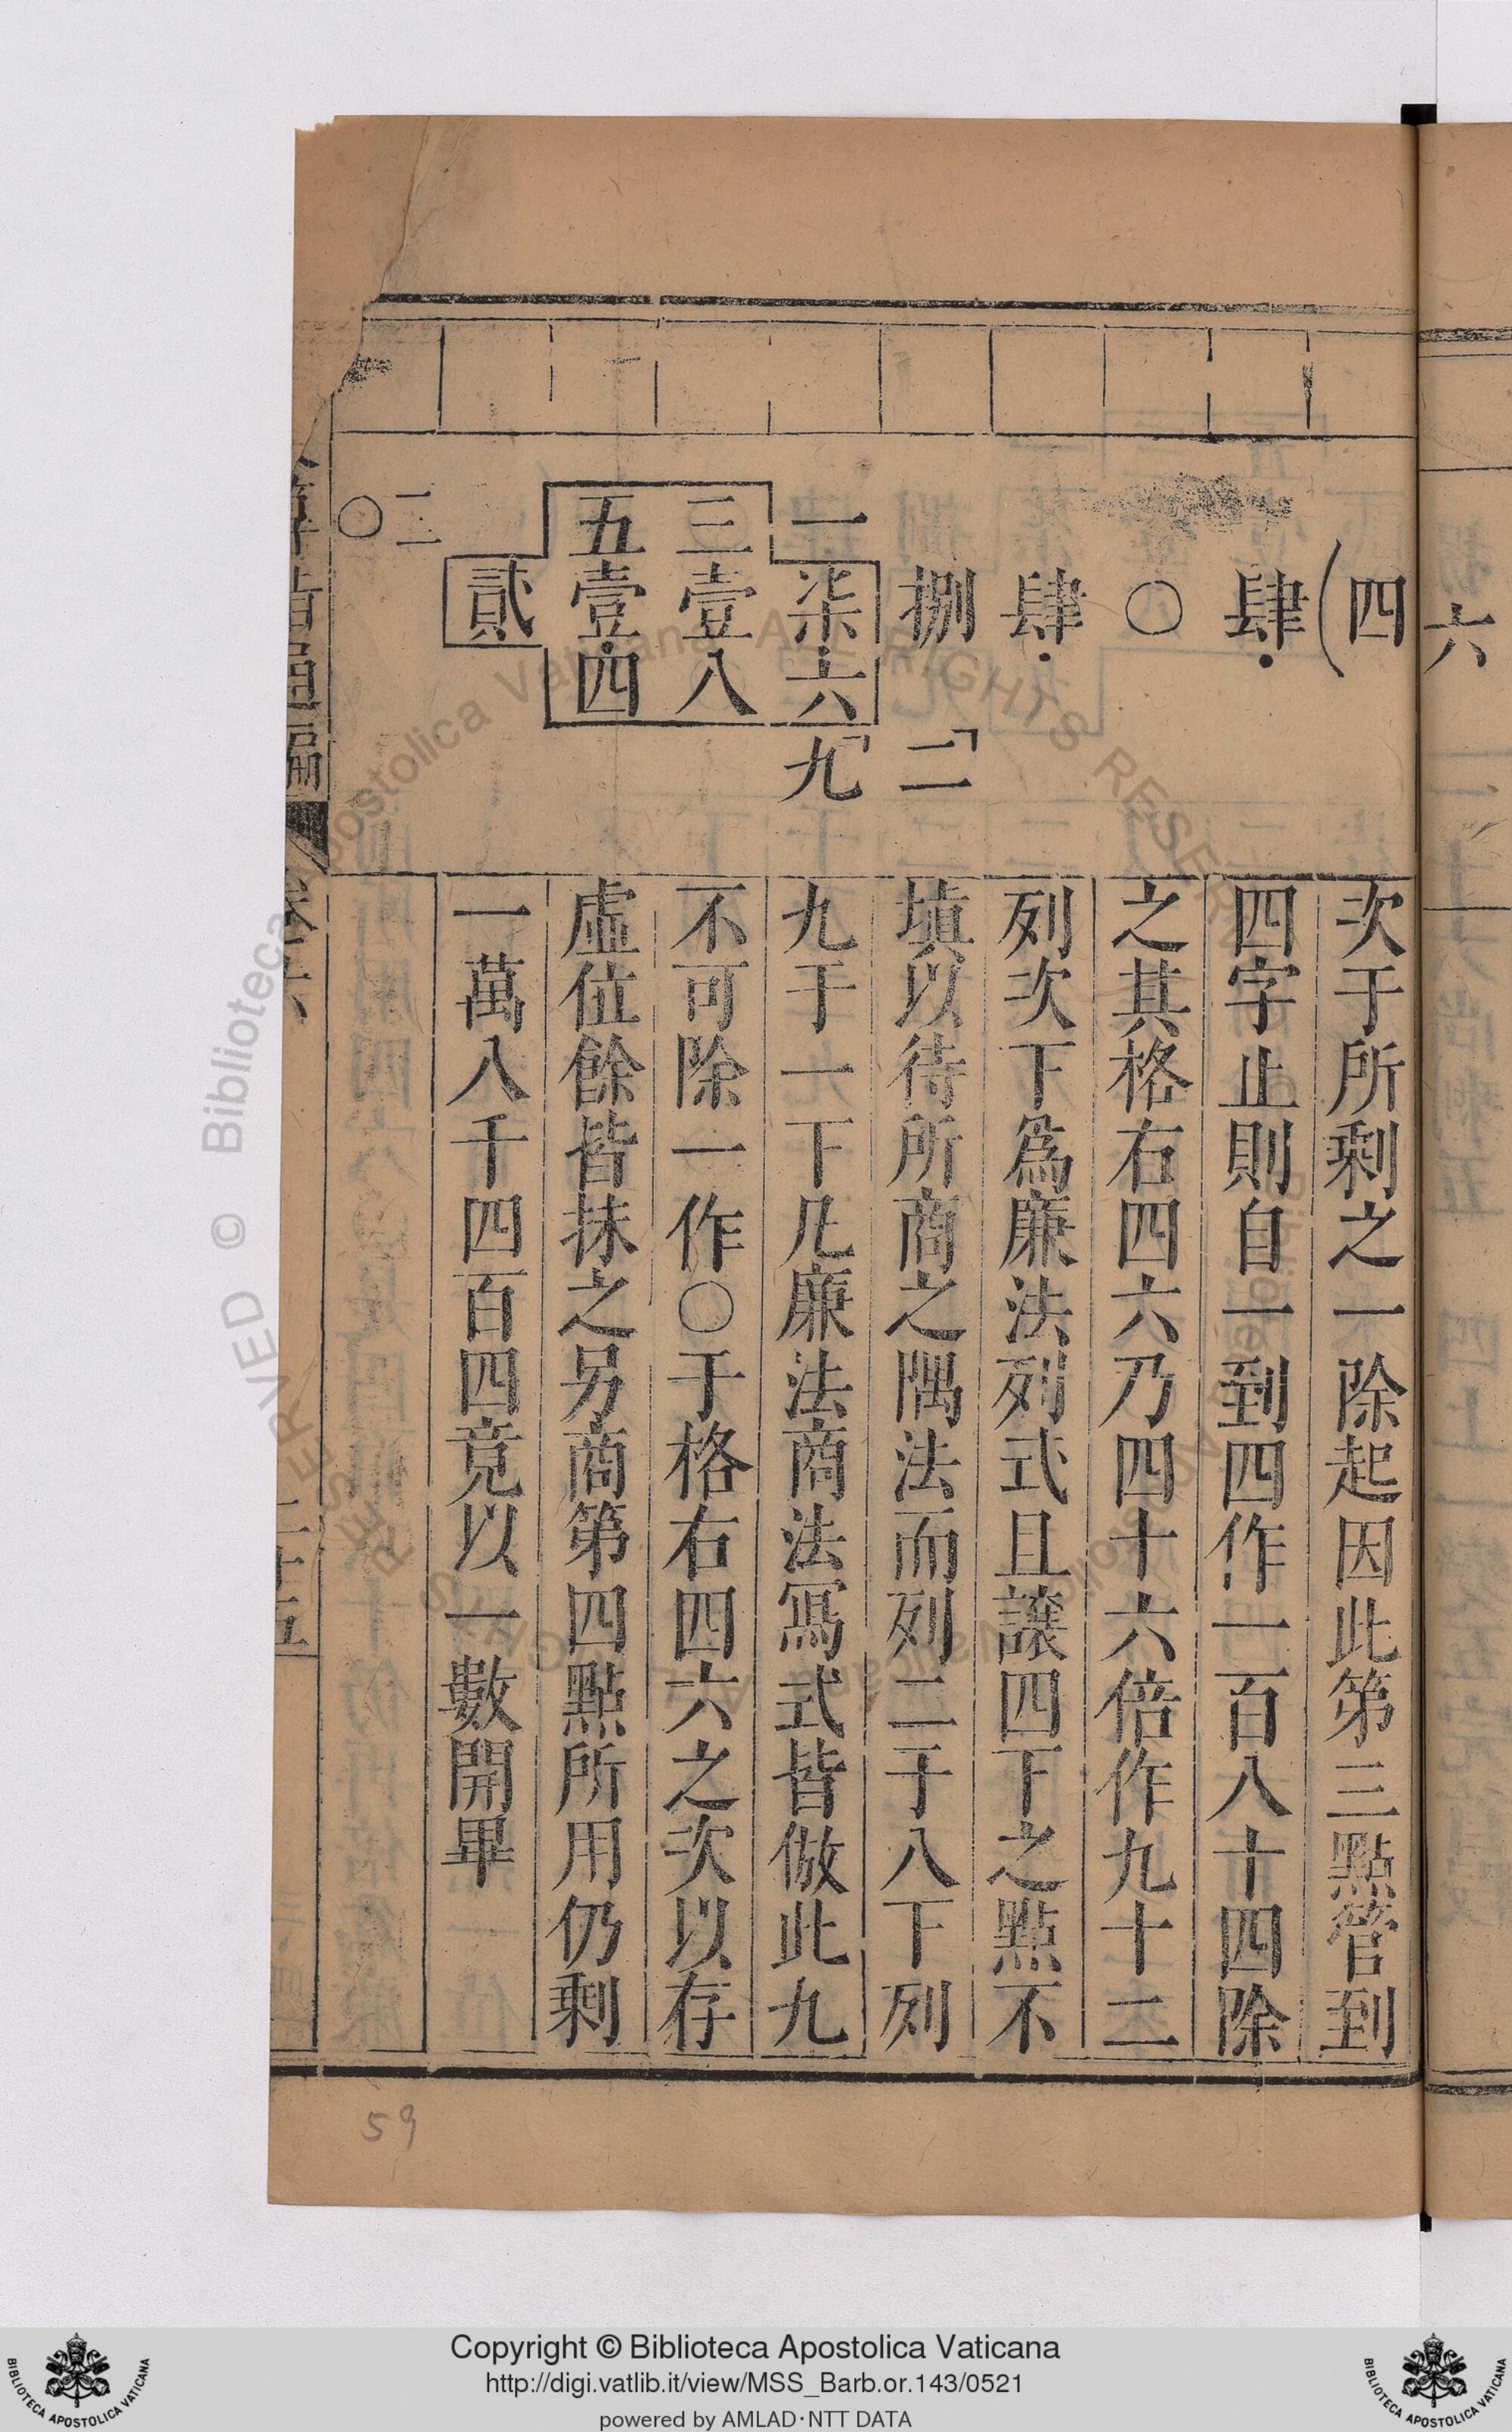 六
四
肆
〇
肆
捌
二
一柒六九
三壹八
五壹四
貳
二
〇
次于所剩之一除起因此第三點管到
四字止則自一到四作一百八十四除
之其格右四六乃四十六倍作九十二
列次下為廉法列式且讓四下之點不
填以待所商之隅法而列二于八下列
九于一下凡廉法商法寫式皆倣此九
不可除一作〇于格右四六之次以存
虛位餘皆抹之另商第四點所用仍剩
一萬八千四百四竟以一數開畢
59
Biblioteca Apostolica Vaticana ALL RIGHTS RESERVED ©
Copyright © Biblioteca Apostolica Vaticana
http://digi.vatlib.it/view/MSS_Barb.or.143/0521
powered by AMLAD·NTT DATA
BIBLIOTECA APOSTOLICA VATICANA
BIBLIOTECA APOSTOLICA VATICANA